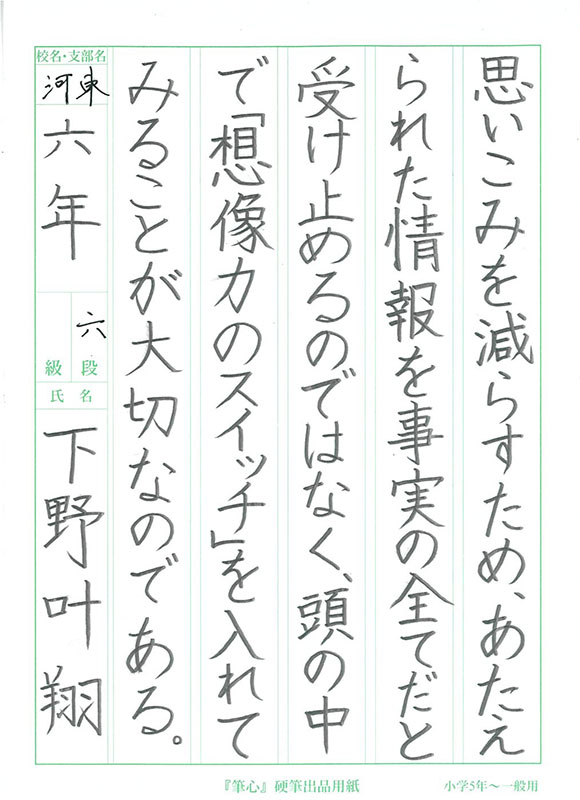 思いこみを減らすため、あたえ
られた情報を事実の全てだと
受け止めるのではなく、頭の中
で「想像力のスイッチ」を入れて
みることが大切なのである。
校名・支部名
河東
六年
六
段
級
氏名
下野叶翔
『筆心』硬筆出品用紙
小学5年～一般用